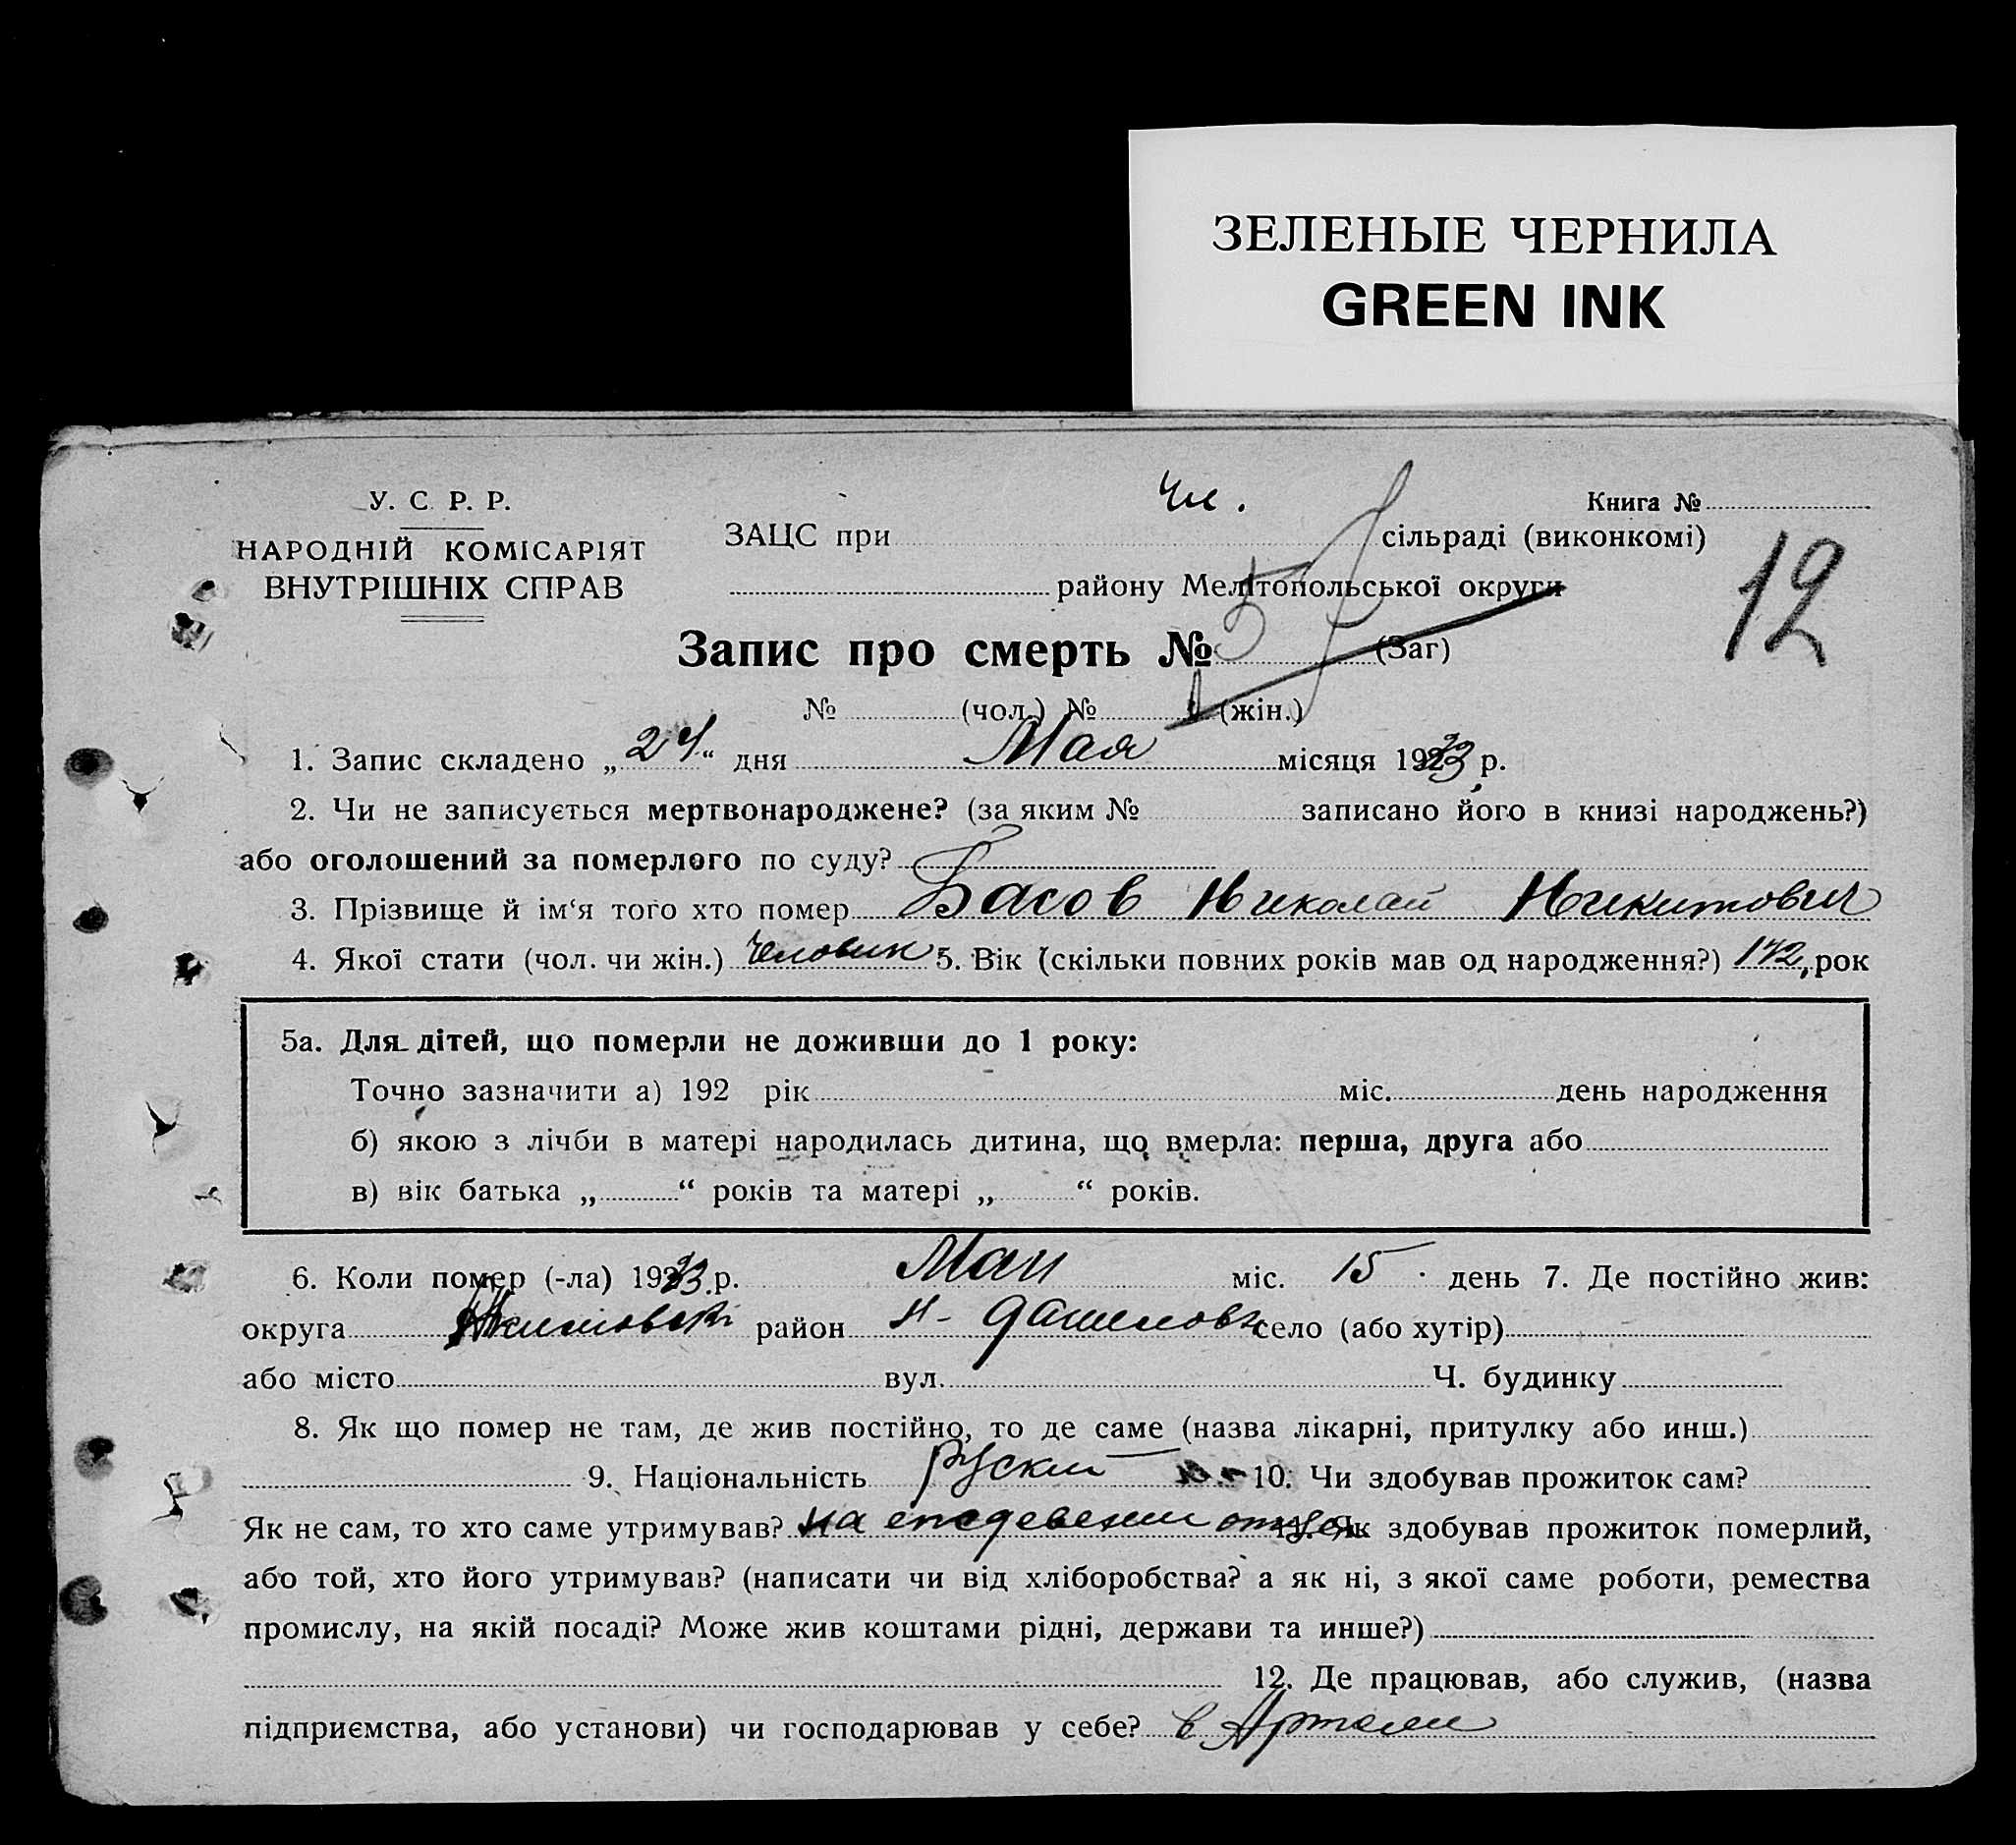 ЗЕЛЕНЫЕ ЧЕРНИЛА
GREEN INK
У. С. Р. Р.
НАРОДНІЙ КОМІСАРІЯТ
ВНУТРІШНІХ СПРАВ
Книга №
ЗАЦС при сільраді (виконкомі)
району Мелітопольської округи
12
Запис про смерть № 57 (Заг)
№ (чол.) № (жін.)
1. Запис складено „24“ дня Мая місяця 1933 р.
2. Чи не записується мертвонароджене? (за яким № записано його в книзі народжень?)
або оголошений за померлого по суду?
3. Прізвище й ім‘я того хто помер Басов Николай Никитович
4. Якої стати (чол. чи жін.) Человик 5. Вік (скільки повних років мав од народження?) рок
5а. Для дітей, що померли не доживши до 1 року:
Точно зазначити а) 192 рік міс. день народження
б) якою з лічби в матері народилась дитина, що вмерла: перша, друга або
в) вік батька „ “ років та матері „ “ років.
6. Коли помер (-ла) 1933 р. Маи міс. 15 день 7. Де постійно жив:
округа район село (або хутір)
або місто вул. Ч. будинку
8. Як що помер не там, де жив постійно, то де саме (назва лікарні, притулку або инш.)
9. Національність Руский 10. Чи здобував прожиток сам?
Як не сам, то хто саме утримував? на отца 11. Як здобував прожиток померлий,
або той, хто його утримував? (написати чи від хліборобства? а як ні, з якої саме роботи, ремества
промислу, на якій посаді? Може жив коштами рідні, держави та инше?)
12. Де працював, або служив, (назва
підприємства, або установи) чи господарював у себе? в Артели